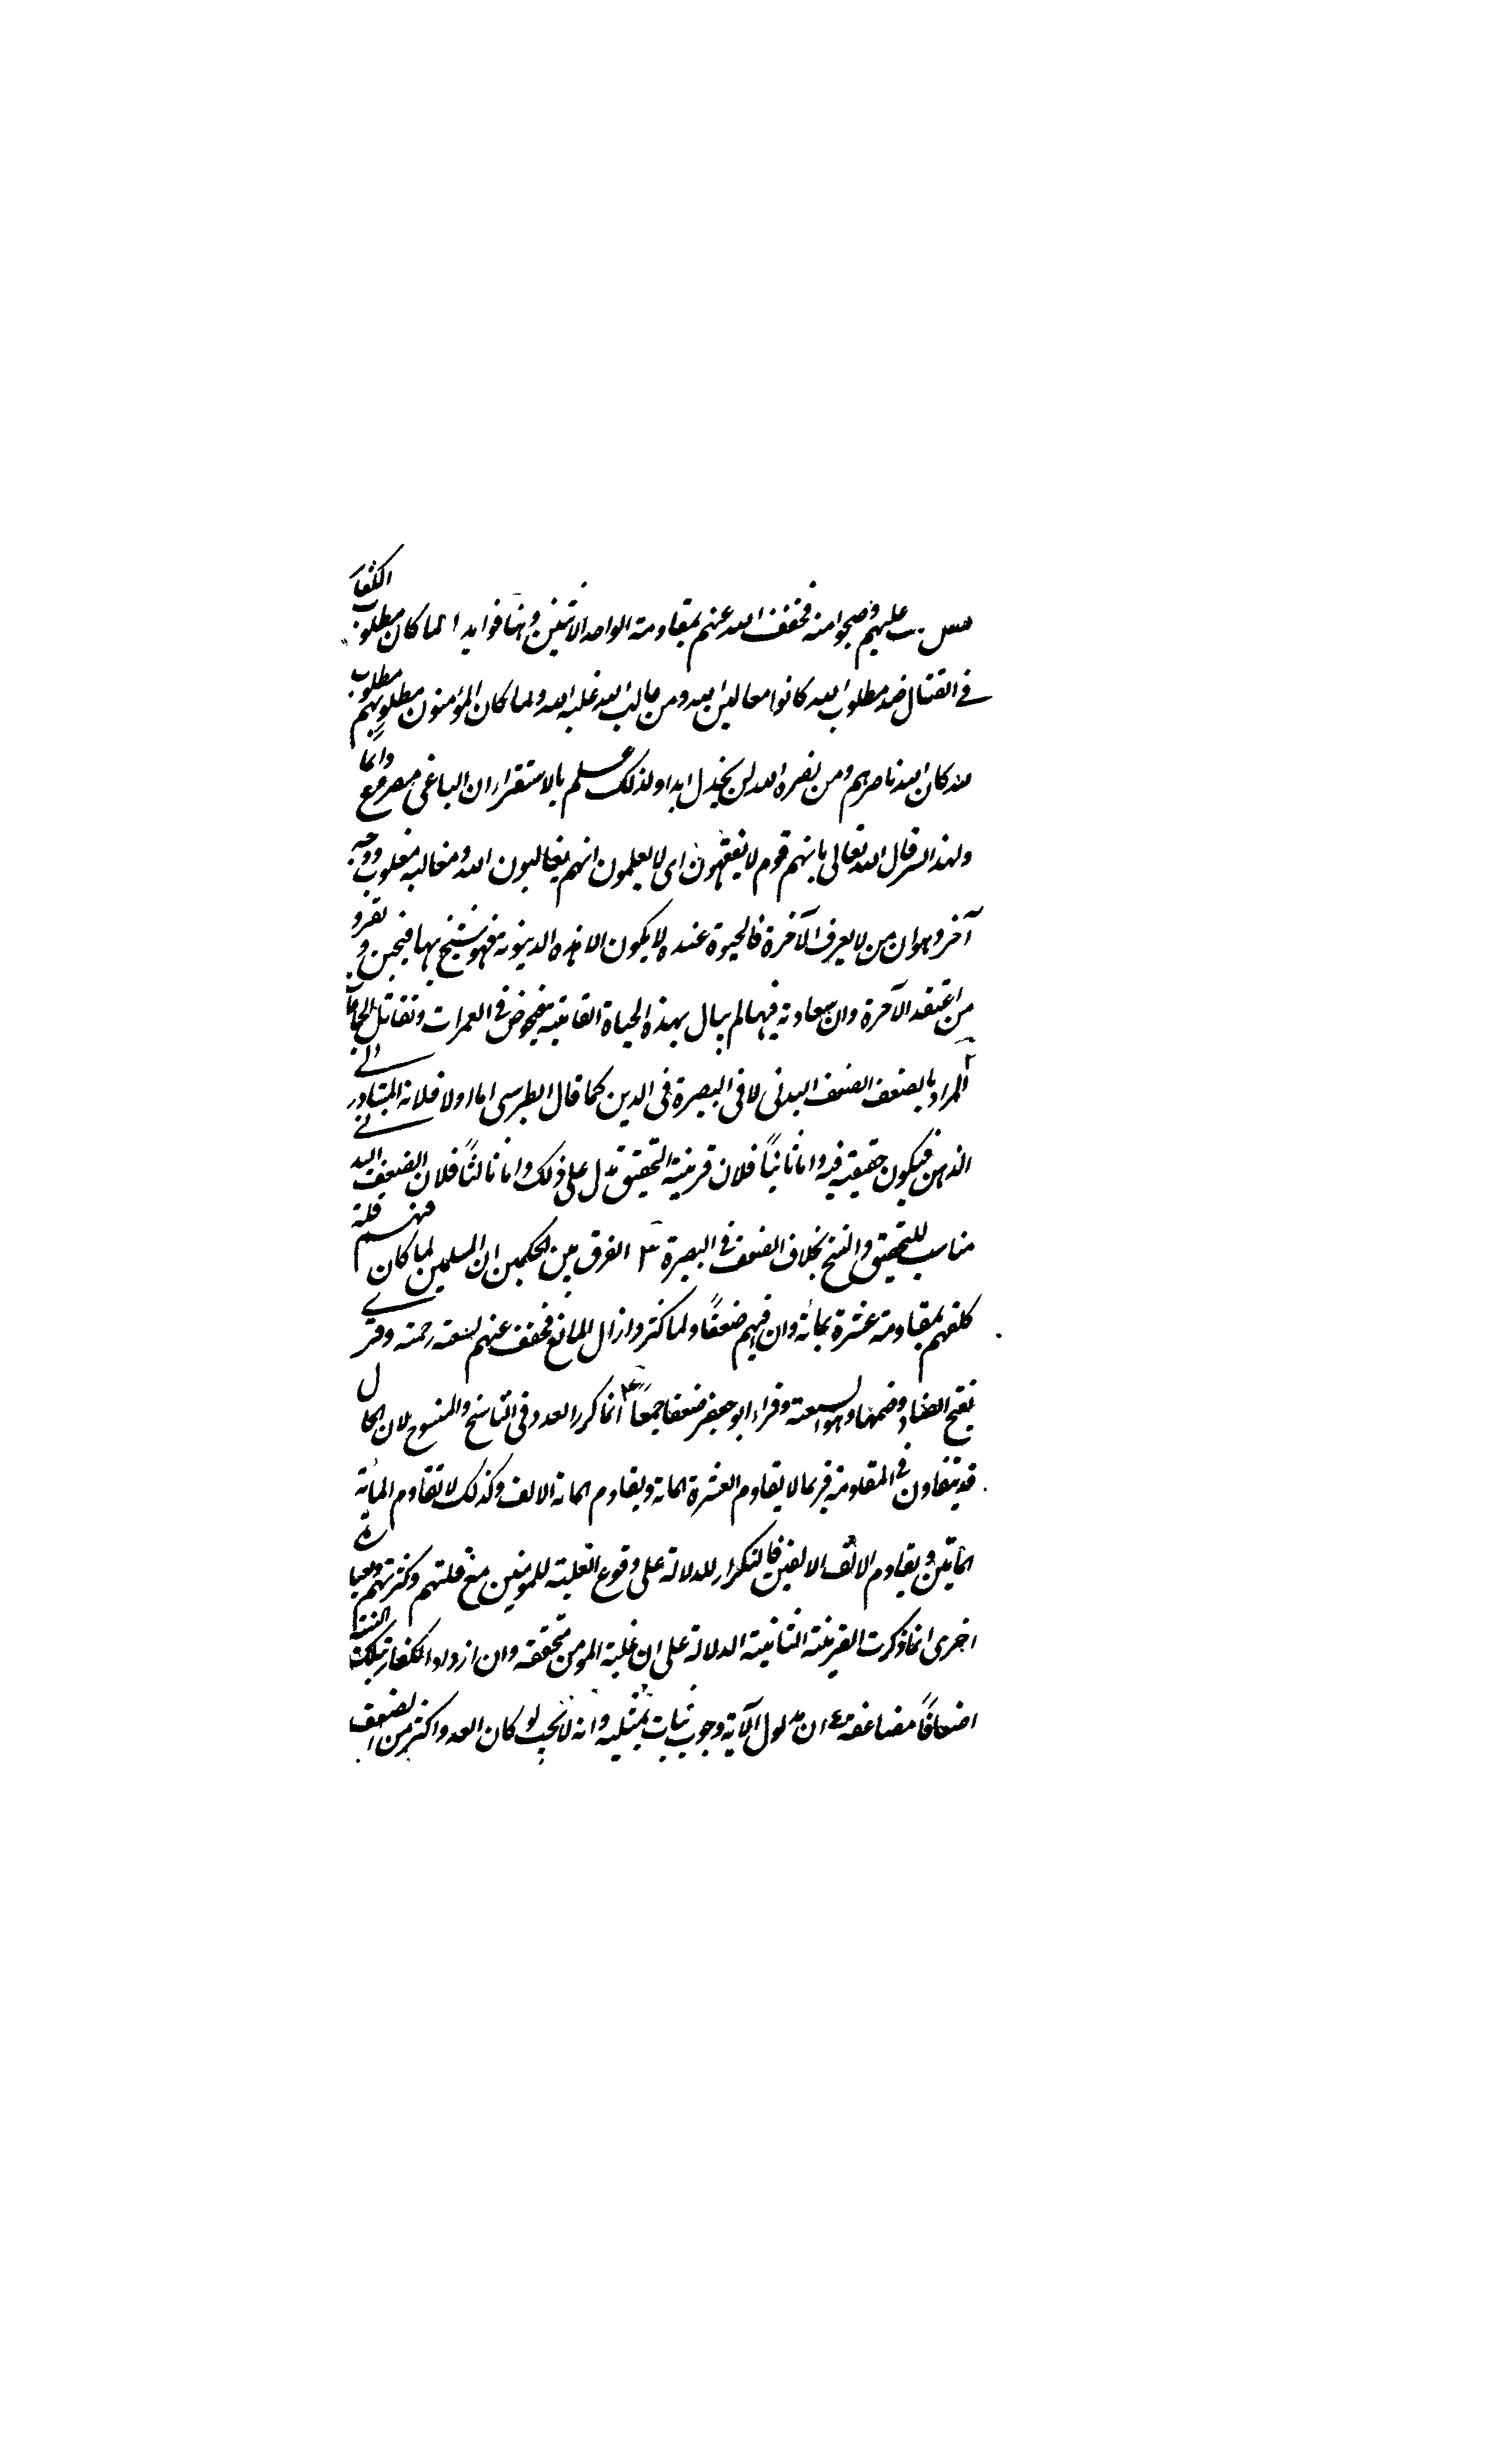 عليهم وضجوا منه فخفف الله عنهم بمقاومة الواحد الاثنين وهنا فوايد ا لما كان مطلوب الكفار
في القتال ضد مطلوب الله كانوا مغالبين الله ومن غالب الله غلبه الله ولما كان المؤمنون مطلوبهم مطلوب
الله كان الله ناصرهم ومن نصره الله لن يخذل ابدا ولذلك علم بالاستقراء ان الباغي مصروع دائما
ولهذا السر قال الله تعالى بانهم قوم لا يفقهون اى لا يعلمون انهم يغالبون الله ومغالبه مغلوب ووجه
آخر وهو ان من لا يعرف الآخرة فالحيوة عنده لا يكون الا هذه الدنيوية فهو يشح بها فيجبن و
من اعتقد الآخرة وان سعادته فيها لم يبال بهذه الحياة الفانية فيخوض في الغمرات وتقاتل
٢ المراد بالضعف الضعف البدنى لا فى البصيرة فى الدين كما قال الطبرسى اما اولا فلانه المتبادر الى
الذهن فيكون حقيقة فيه واما ثانياً فلان قرينة التخفيف تدل على ذلك واما ثالثاً فلان الضعف البدني
مناسب للتخفيف والنسخ بخلاف الضعف في البصيرة ٣ الفرق بين الحكمين ان المسلمين لما كان فيهم قلة
كلفهم بمقاومة عشرة بمائة وان فيهم ضعفاً ولما كثروا زال المانع فخفف عنهم لسعة رحمته وقرئ
بفتح الضاد وضمها وهو السبعة وقراء ابو جعفر ضعفا جمعاً ٣ انما كرر العدد فى الناسخ والمنسوخ لان الحال
قد يتفاوت في المقاومة فربما لا يقاوم العشرة المائة ويقاوم المائة الالف وكذلك لا تقاوم المائة
المأتين ويقاوم الالف الالفين فالتكرار للدلالة على وقوع الغلبة للمؤمنين مع قلتهم وكثرتهم وبعبارة
اخرى انما ذكرت القرينة الثانية الدلالة على ان غلبة المومن متحققة وان ازداد الكفار بتلك النسبة
اضعافاً مضاعفة ٤ ان مدلول الآية وجوب ثبات بمثليه وانه لا يجب لو كان العدو اكثر من الضعف